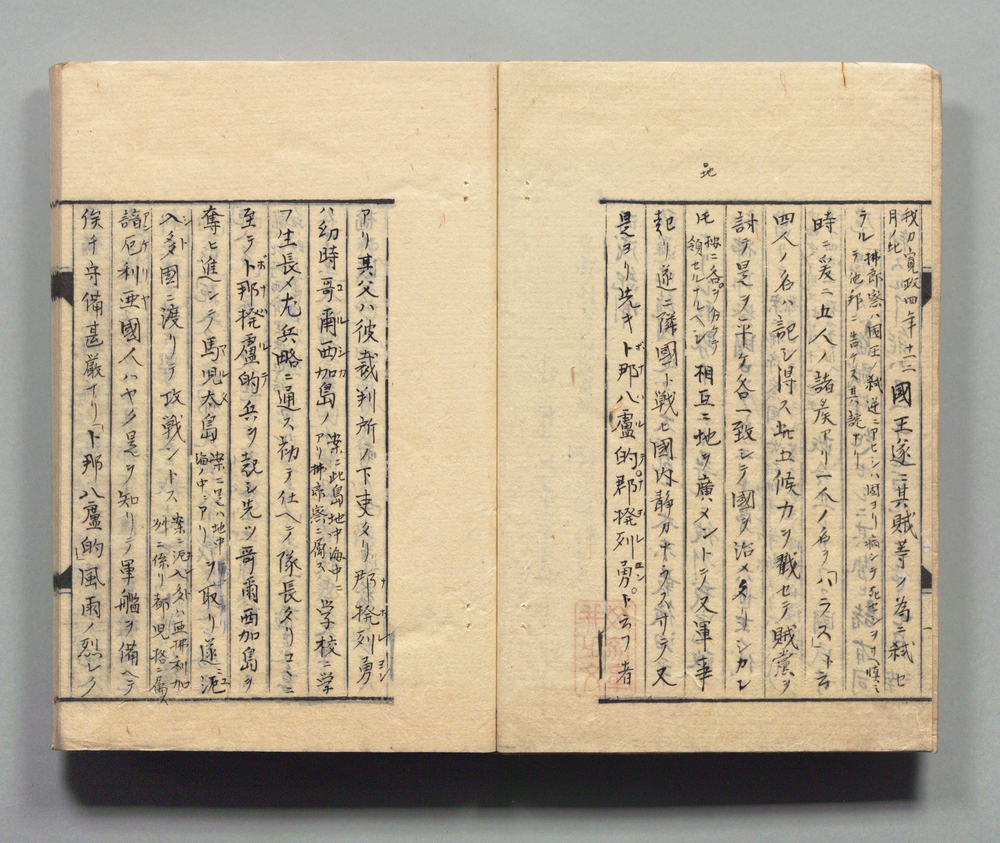 我カ寛政四年十二
月ノ比
國王遂ニ其賊等ノ為ニ弑セ
ラル
拂郎察ハ國王ノ弑逆ニアヒシハ固ヨリ病シテ死セ
テ他邦ニ告ケ
時ニ爰ニ五人ノ諸矦アリ一人ノ名ヲ「バラス」ト云
四人ノ名ハ記シ得ス此五候力ヲ戮セテ賊黨ヲ
討テ是ヲ平ケ各一致シテ國ヲ治メタリ
地
領セルナルヘシ
相互ニ地ヲ廣メントテ又軍事
起リ遂ニ隣國ト戦ヒ國内静カナラスサテ又
是ヨリ先キ「ト那八盧的郡撥列勇」ト云フ者
アリ其父ハ彼裁判所ノ下吏タリ郡撥列勇
ハ幼時哥爾西加島ノ
案ニ此島地中海中ニ
アリ拂郎察ニ屬ス
学校ニ学
フ生長メ尤兵略ニ通ス勤テ仕ヘテ隊長タリコヽニ
至テ「ト那撥盧的兵ヲ起シ先ツ哥爾西加島ヲ
奪ヒ進ンテ馬児太島
案ニ是ハ地中
海ノ中ニアリ
ヲ取リ遂ニ厄
入多國ニ渡リテ攻戦ントス
案ニ厄入多ハ亜弗利加
州ニ係リ都児格ニ屬ス
諳厄利亜國人ハヤク是ヲ知リテ軍艦ヲ備ヘテ
俟チ守備甚厳ナリ「ト那八盧的」風雨ノ烈シク